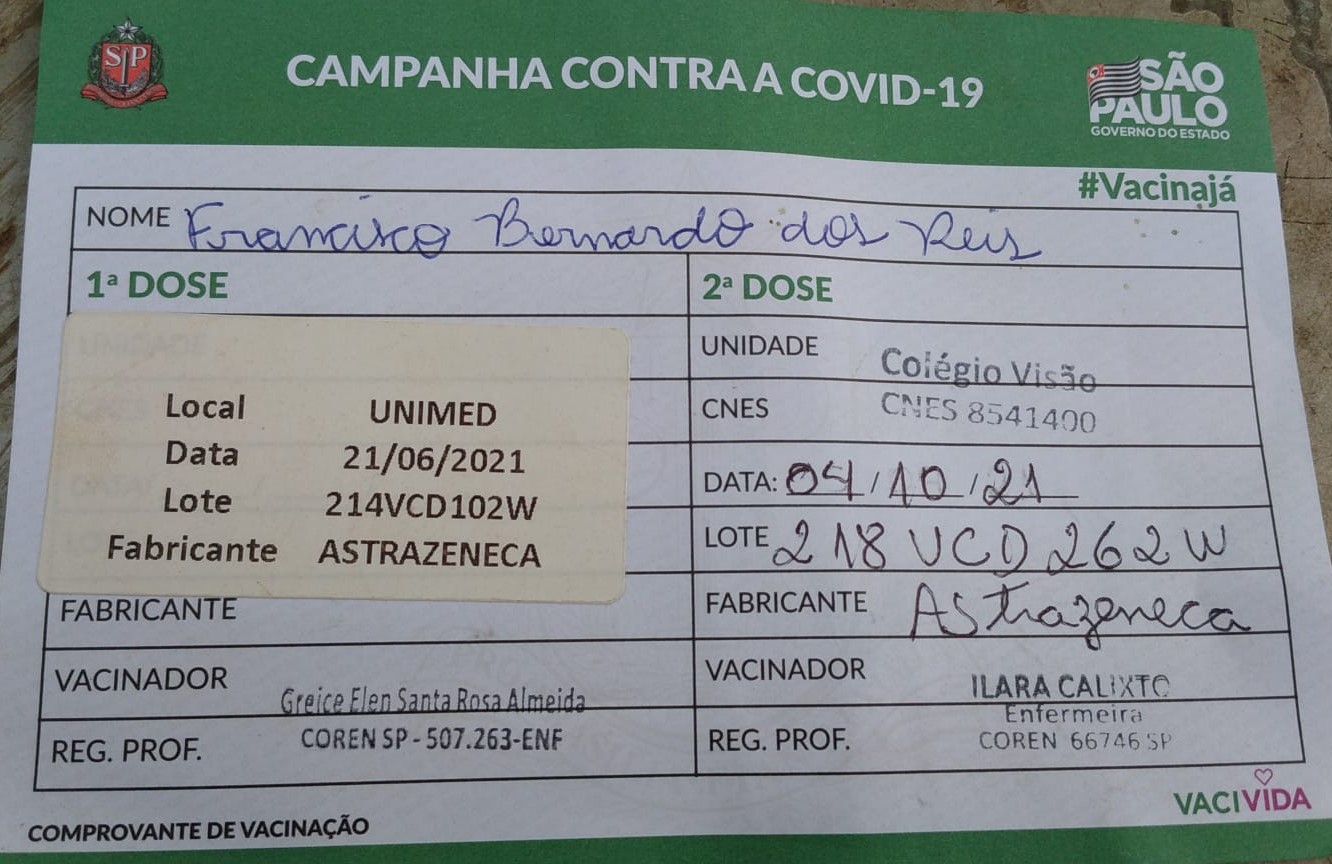 SP
CAMPANHA CONTRA A COVID-19
SÃO
PAULO
GOVERNO DO ESTADO
#Vacinajá
NOME Francisco Bernardo dos Reis
1ª DOSE
Local UNIMED
Data 21/06/2021
Lote 214VCD102W
Fabricante ASTRAZENECA
FABRICANTE
VACINADOR Greice Elen Santa Rosa Almeida
REG. PROF. COREN SP - 507.263-ENF
2ª DOSE
UNIDADE Colégio Visão
CNES CNES 8541400
DATA: 04/10/21
LOTE 218VCD262W
FABRICANTE Astrazeneca
VACINADOR ILARA CALIXTO
Enfermeira
REG. PROF. COREN 66746 SP
VACIVIDA
COMPROVANTE DE VACINAÇÃO